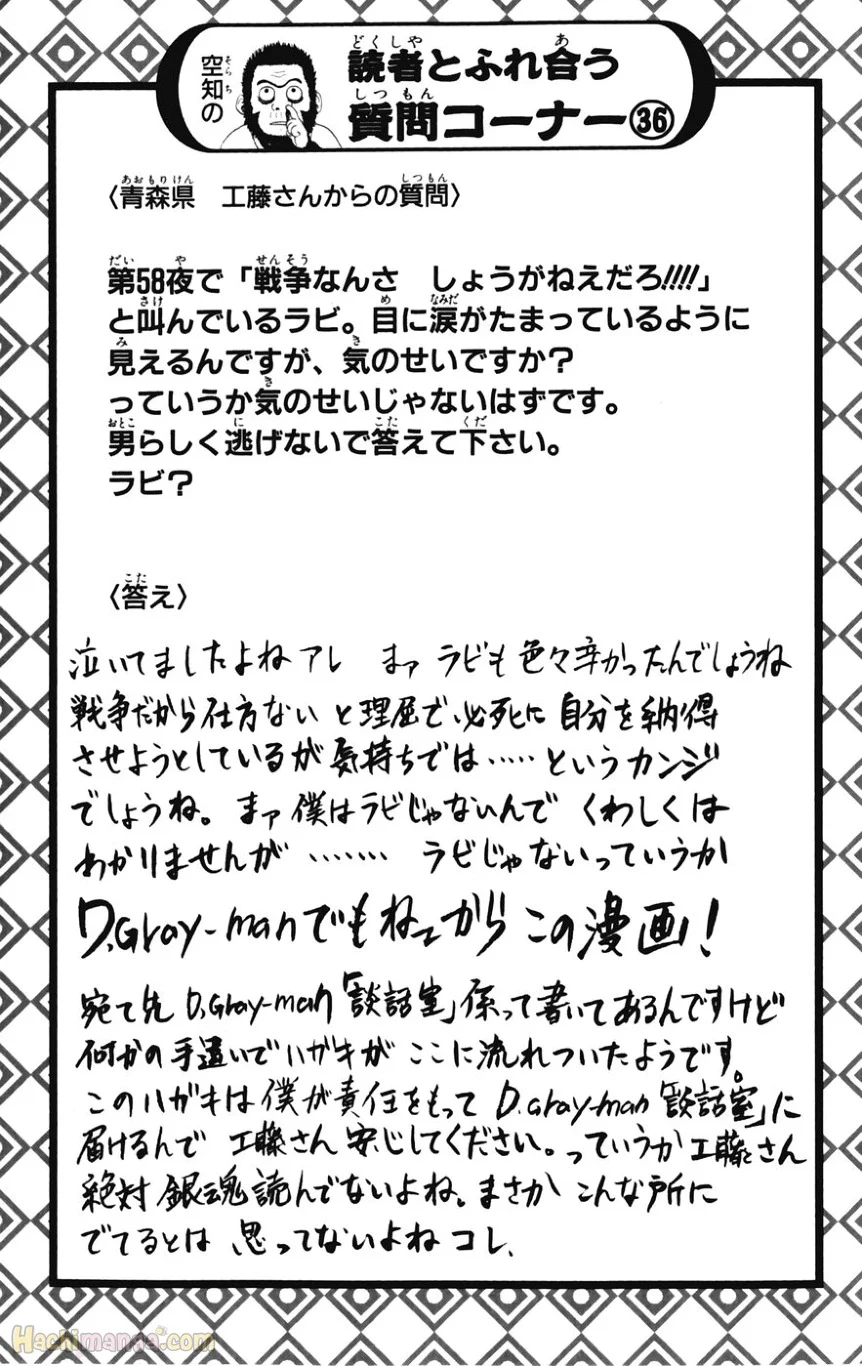 空知の
読者とふれ合う
質問コーナー㊱
〈青森県　工藤さんからの質問〉
第58夜で「戦争なんさ　しょうがねえだろ!!!!」
と叫んでいるラビ。目に涙がたまっているように
見えるんですが、気のせいですか？
っていうか気のせいじゃないはずです。
男らしく逃げないで答えて下さい。
ラビ？
〈答え〉
泣いてましたよねアレ　まァ ラビも色々辛かったんでしょうね
戦争だから仕方ない と理屈で必死に 自分を納得
させようとしているが気持ちでは……というカンジ
でしょうね。まァ 僕はラビじゃないんで くわしくは
わかりませんが ……… ラビじゃないっていうか
D.Gray-manでもねーからこの漫画！
宛て先 D.Gray-man「談話室」係って書いてあるんですけど
何かの手違いでハガキが ここに流れついたようです。
このハガキは僕が責任をもって D.Gray-man「談話室」に
届けるんで 工藤さん安心してください。っていうか工藤さん
絶対 銀魂読んでないよね。まさか こんな所に
でてるとは 思ってないよねコレ、
Hachimanga.com